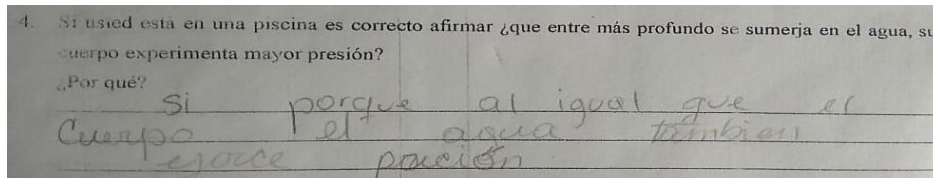 4. Si usted está en una piscina es correcto afirmar ¿que entre más profundo se sumerja en el agua, su
cuerpo experimenta mayor presión?
¿Por qué?
Si porque al igual que el
Cuerpo el agua tambien
ejorce preción